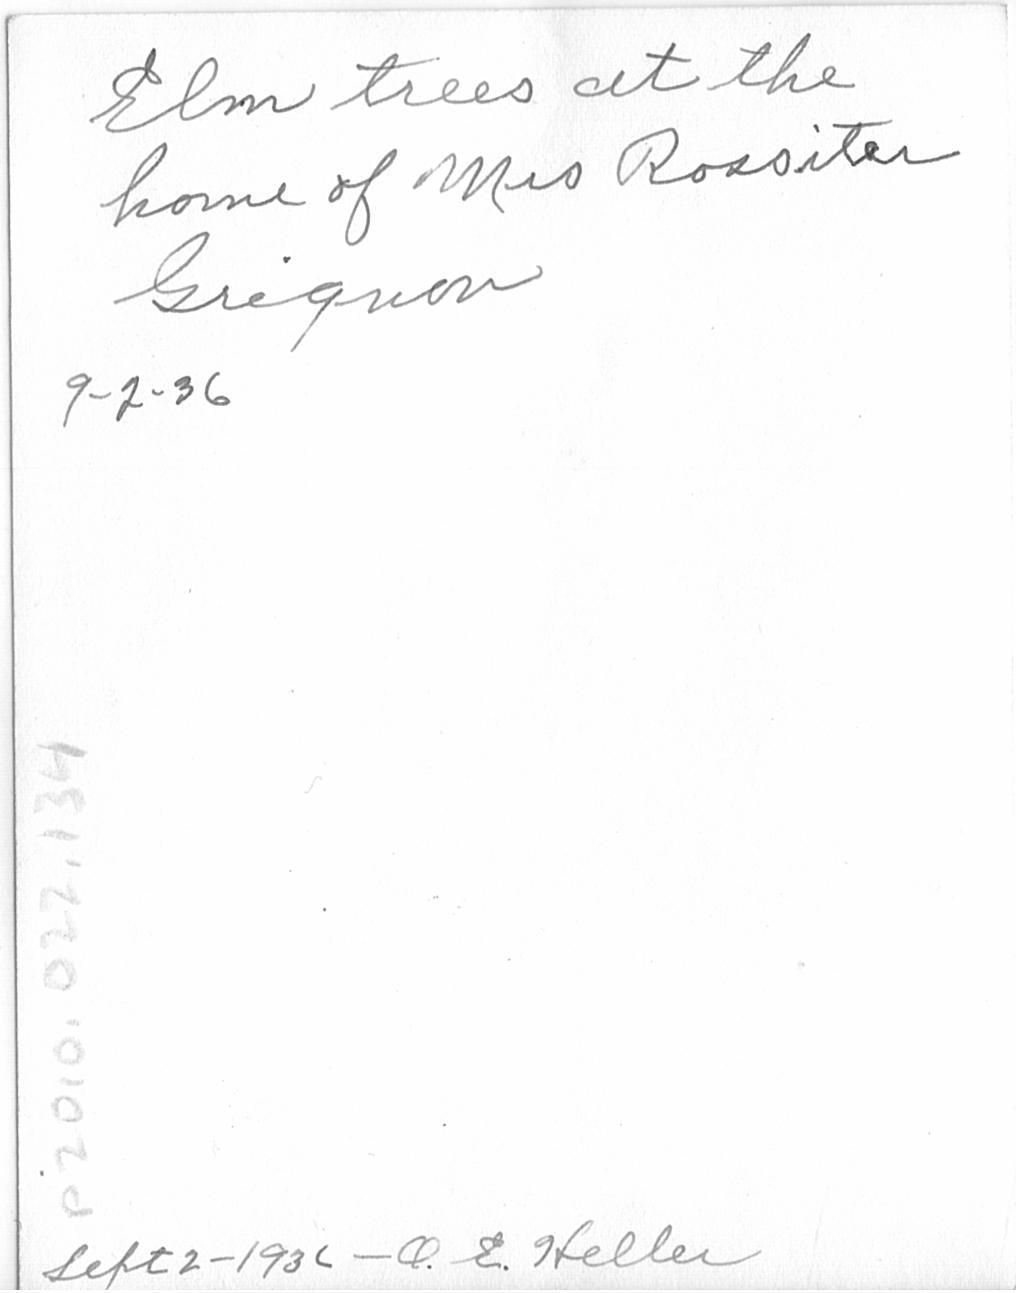 Elm trees at the
home of Mrs Rossiter
Grignon
9-2-36
P2010.022.134
Sept 2-1936 - O. E. Heller